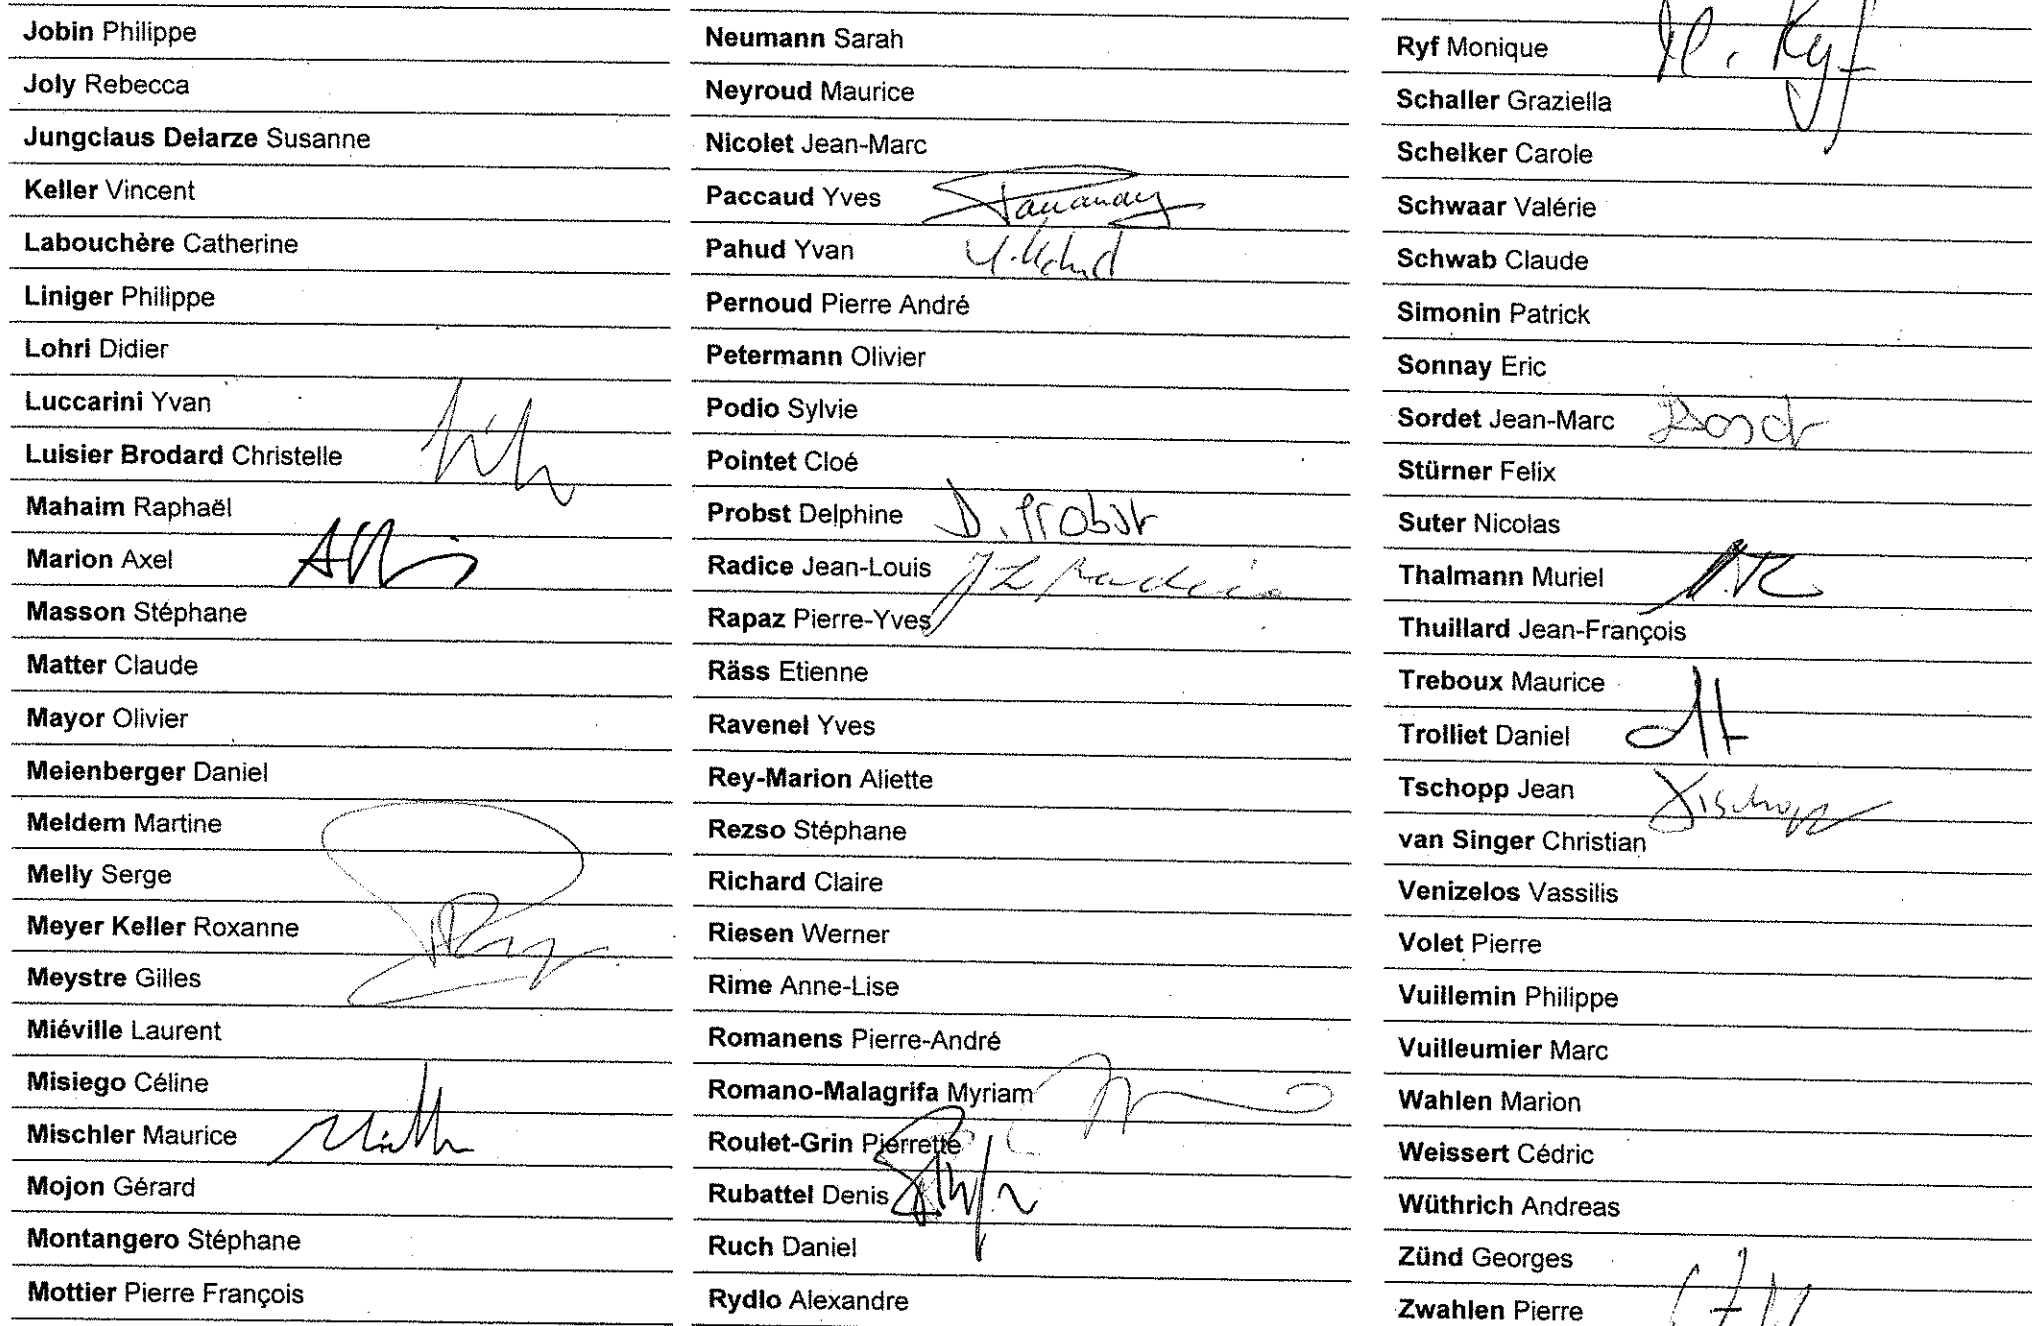 Jobin Philippe
Joly Rebecca
Jungclaus Delarze Susanne
Keller Vincent
Labouchère Catherine
Liniger Philippe
Lohri Didier
Luccarini Yvan
Luisier Brodard Christelle
Mahaim Raphaël
Marion Axel
Masson Stéphane
Matter Claude
Mayor Olivier
Meienberger Daniel
Meldem Martine
Melly Serge
Meyer Keller Roxanne
Meystre Gilles
Miéville Laurent
Misiego Céline
Mischler Maurice
Mojon Gérard
Montangero Stéphane
Mottier Pierre François
Neumann Sarah
Neyroud Maurice
Nicolet Jean-Marc
Paccaud Yves
Pahud Yvan
Pernoud Pierre André
Petermann Olivier
Podio Sylvie
Pointet Cloé
Probst Delphine D. Probst
Radice Jean-Louis JL Radice
Rapaz Pierre-Yves
Räss Etienne
Ravenel Yves
Rey-Marion Aliette
Rezso Stéphane
Richard Claire
Riesen Werner
Rime Anne-Lise
Romanens Pierre-André
Romano-Malagrifa Myriam
Roulet-Grin Pierrette
Rubattel Denis
Ruch Daniel
Rydlo Alexandre
Ryf Monique M. Ryf
Schaller Graziella
Schelker Carole
Schwaar Valérie
Schwab Claude
Simonin Patrick
Sonnay Eric
Sordet Jean-Marc
Stürner Felix
Suter Nicolas
Thalmann Muriel
Thuillard Jean-François
Treboux Maurice
Trolliet Daniel
Tschopp Jean
van Singer Christian
Venizelos Vassilis
Volet Pierre
Vuillemin Philippe
Vuilleumier Marc
Wahlen Marion
Weissert Cédric
Wüthrich Andreas
Zünd Georges
Zwahlen Pierre